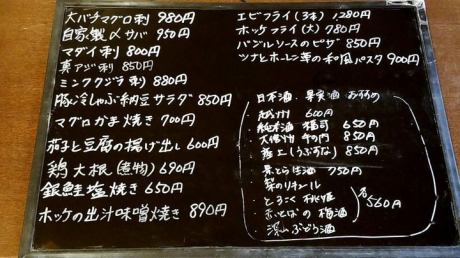 大バチマグロ刺 980円
自家製〆サバ 950円
マダイ刺 800円
真アジ刺 850円
ミンククジラ刺 880円
豚冷しゃぶ納豆サラダ 850円
マグロカマ焼き 700円
茄子と豆腐の揚げ出し 600円
鶏大根(煮物) 690円
銀鮭塩焼き 650円
ホッケの出汁味噌焼き 890円
エビフライ(3本) 1,280円
ホッケフライ(大) 780円
バジルソースのピザ 850円
ツナとホーレン草の和風パスタ 900円
日本酒 果実酒 おすすめ
600円
純米酒 福司 650円
850円
(うぶすな) 850円
750円
・梨のリキュール
・とろこく 桃姫
の梅酒
・深山ぶどう酒
各550円